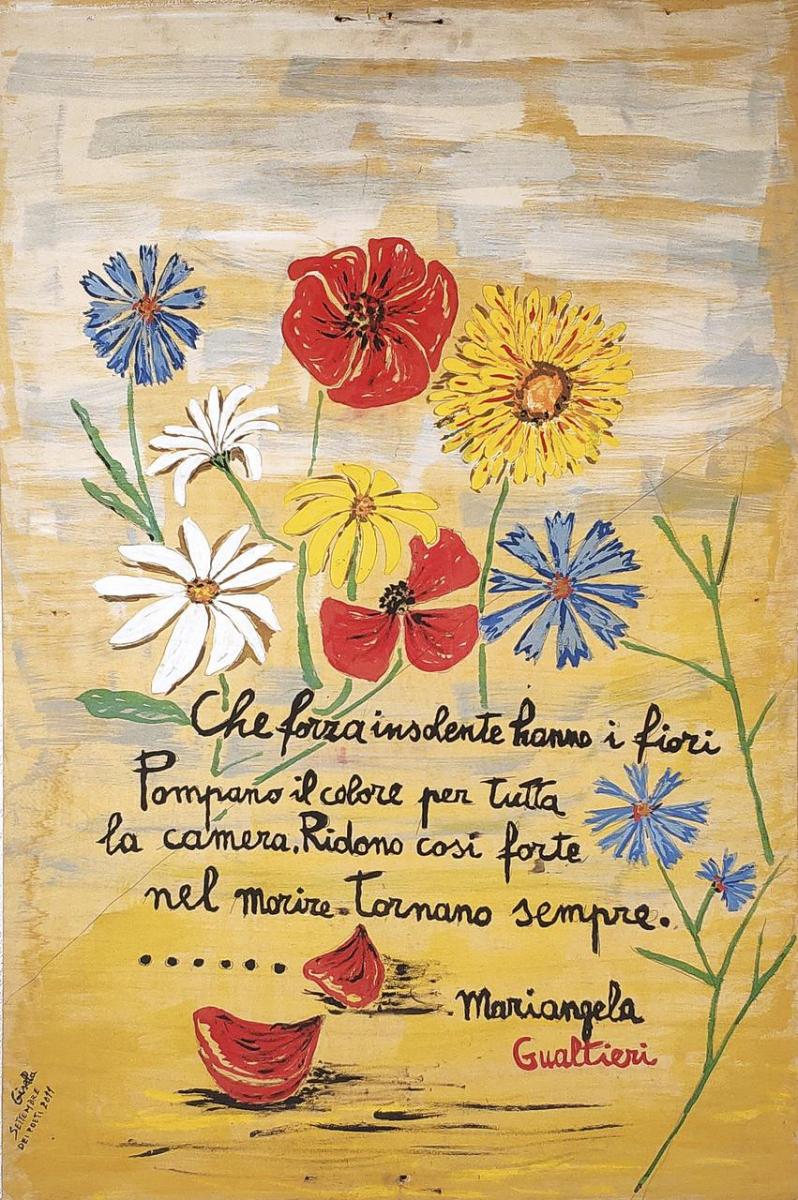 Che forza insolente hanno i fiori
Pompano il colore per tutta
la camera. Ridono così forte
nel morire. Tornano sempre.
......
Mariangela
Gualtieri
Gisella
SETTEMBRE
DEI POETI 2011